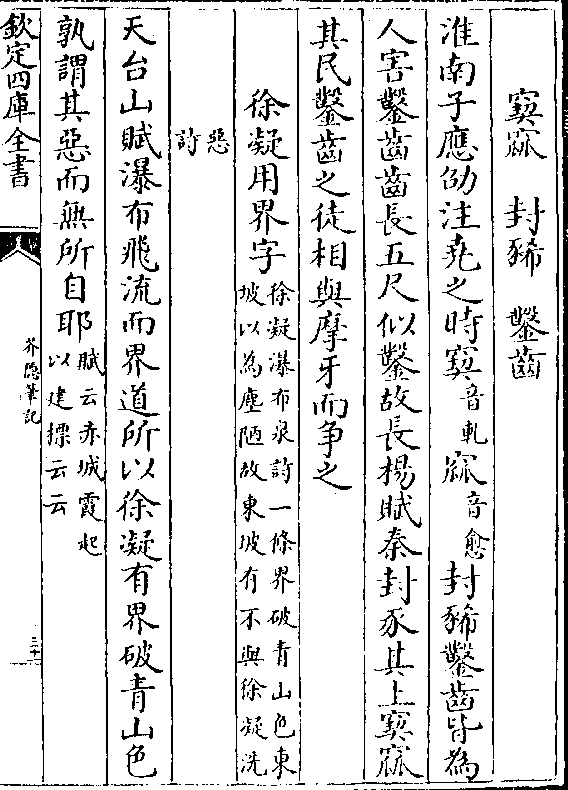 窫窳 封豨 鑿齒
淮南子應劭注堯之時窫音軋窳音愈封豨鑿齒皆為
人害鑿齒齒長五尺似鑿故長楊賦秦封豕其上窫窳
其民鑿齒之徒相與摩牙而爭之
徐凝用界字徐凝瀑布泉詩一條界破青山色東
坡以為塵陋故東坡有不與徐凝洗
惡
詩
天台山賦瀑布飛流而界道所以徐凝有界破青山色
孰謂其惡而無所自耶賦云赤城霞起
以建摽云云
欽定四庫全書
芥隱筆記